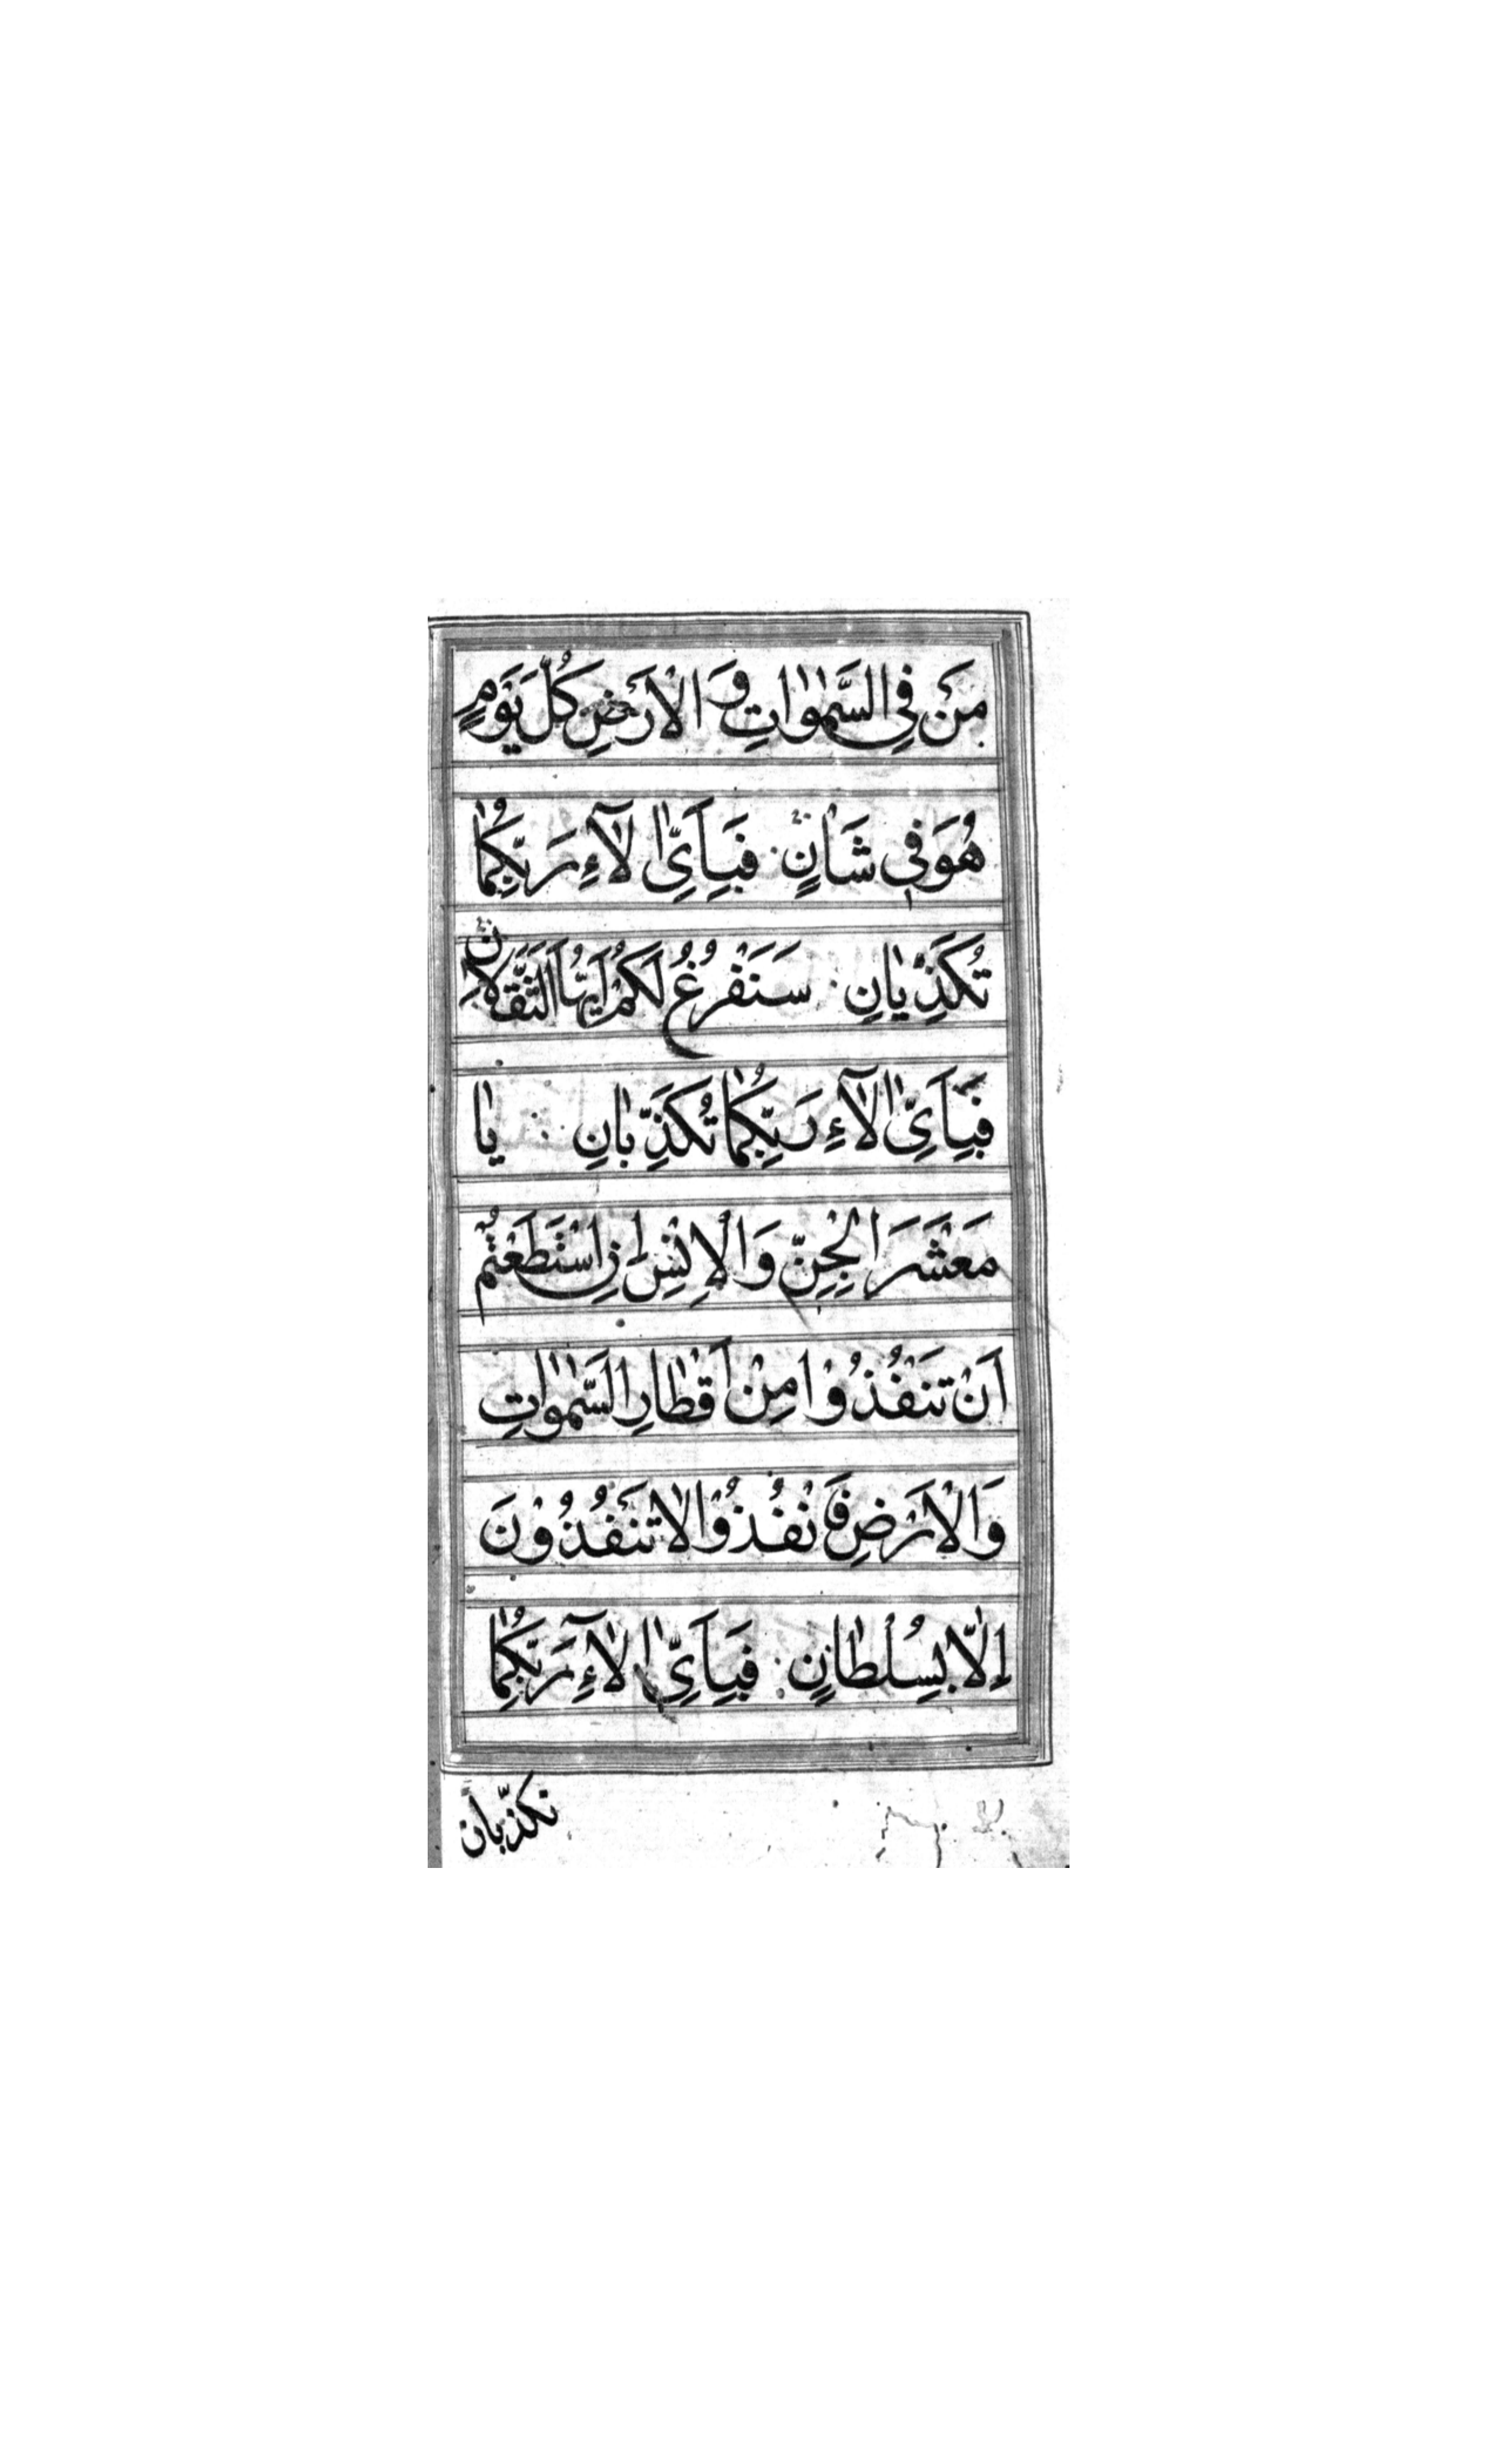 مَنْ فِي السَّمٰوٰاتِ وَ الْاَرْضِ كُلَّ يَوْمٍ
هُوَ فِي شَاْنٍ فَبِاَيِّ اٰلَآءِ رَبِّكُمٰا
تُكَذِّبٰانِ سَنَفْرُغُ لَكُمْ اَيُّهَا الثَّقَلَانِ
فَبِاَيِّ اٰلَآءِ رَبِّكُمٰا تُكَذِّبٰانِ يٰا
مَعْشَرَ الْجِنِّ وَ الْاِنْسِ اِنِ اسْتَطَعْتُمْ
اَنْ تَنْفُذُوْا مِنْ اَقْطٰارِ السَّمٰوٰاتِ
وَ الْاَرْضِ فَانْفُذُوْا لٰا تَنْفُذُوْنَ
اِلّٰا بِسُلْطٰانٍ فَبِاَيِّ اٰلَآءِ رَبِّكُمٰا
تكذّبان